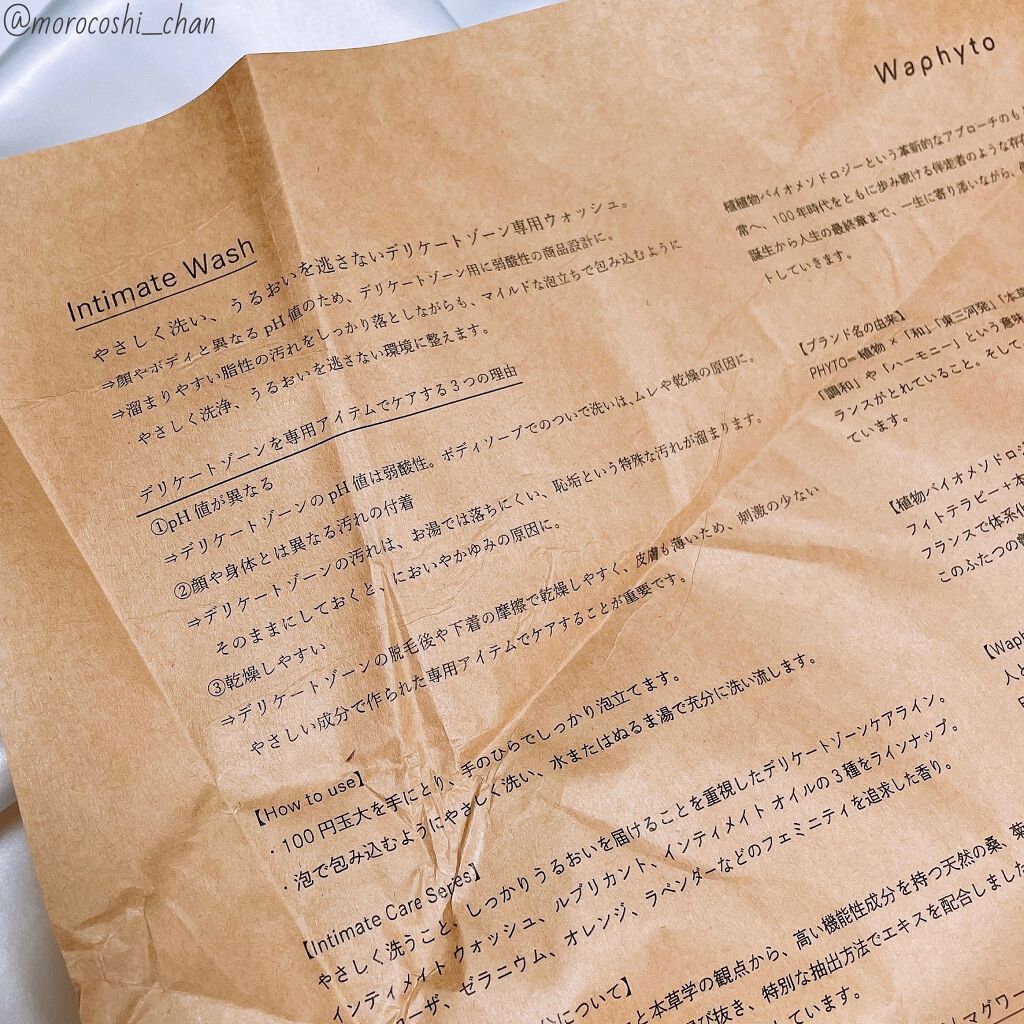 @morocoshi_chan
Waphyto
Intimate Wash
やさしく洗い、うるおいを逃さないデリケートゾーン専用ウォッシュ。
⇒顔やボディと異なる pH 値のため、デリケートゾーン用に弱酸性の商品設計に。
⇒溜まりやすい脂性の汚れをしっかり落としながらも、マイルドな泡立ちで包み込むように
やさしく洗浄、うるおいを逃さない環境に整えます。
デリケートゾーンを専用アイテムでケアする3つの理由
①pH 値が異なる
⇒デリケートゾーンのpH 値は弱酸性。ボディソープでのついで洗いは、ムレや乾燥の原因に。
②顔や身体とは異なる汚れの付着
⇒デリケートゾーンの汚れは、お湯では落ちにくい、恥垢という特殊な汚れが溜まります。
そのままにしておくと、においやかゆみの原因に。
③乾燥しやすい
⇒デリケートゾーンの脱毛後や下着の摩擦で乾燥しやすく、皮膚も薄いため、刺激の少ない
やさしい成分で作られた専用アイテムでケアすることが重要です。
【How to use】
・100 円玉大を手にとり、手のひらでしっかり泡立てます。
・泡で包み込むようにやさしく洗い、水またはぬるま湯で充分に洗い流します。
【Intimate Care Seres】
やさしく洗うこと、しっかりうるおいを届けることを重視したデリケートゾーンケアライン。
インティメイト ウォッシュ、ルブリカント、インティメイト オイルの3種をラインナップ。
ローザ、ゼラニウム、オレンジ、ラベンダーなどのフェミニティを追求した香り。
分について】
と本草学の観点から、高い機能性成分を持つ天然の桑、菊
び抜き、特別な抽出方法でエキスを配合しました
しています。
マグワー
植植物バイオメソドロジーという革新的なアプローチのも
常へ、100年時代をともに歩み続ける伴走者のような存在
誕生から人生の最終章まで、一生に寄り添いながら、
トしていきます。
【ブランド名の由来】
PHYTO=植物 × 「和」「東三河発」「本草
「調和」や「ハーモニー」という意味
ランスがとれていること。そして
ています。
【植物バイオメソドロジ
フィトテラピー+本
フランスで体系化
このふたつの
【Wap
人と